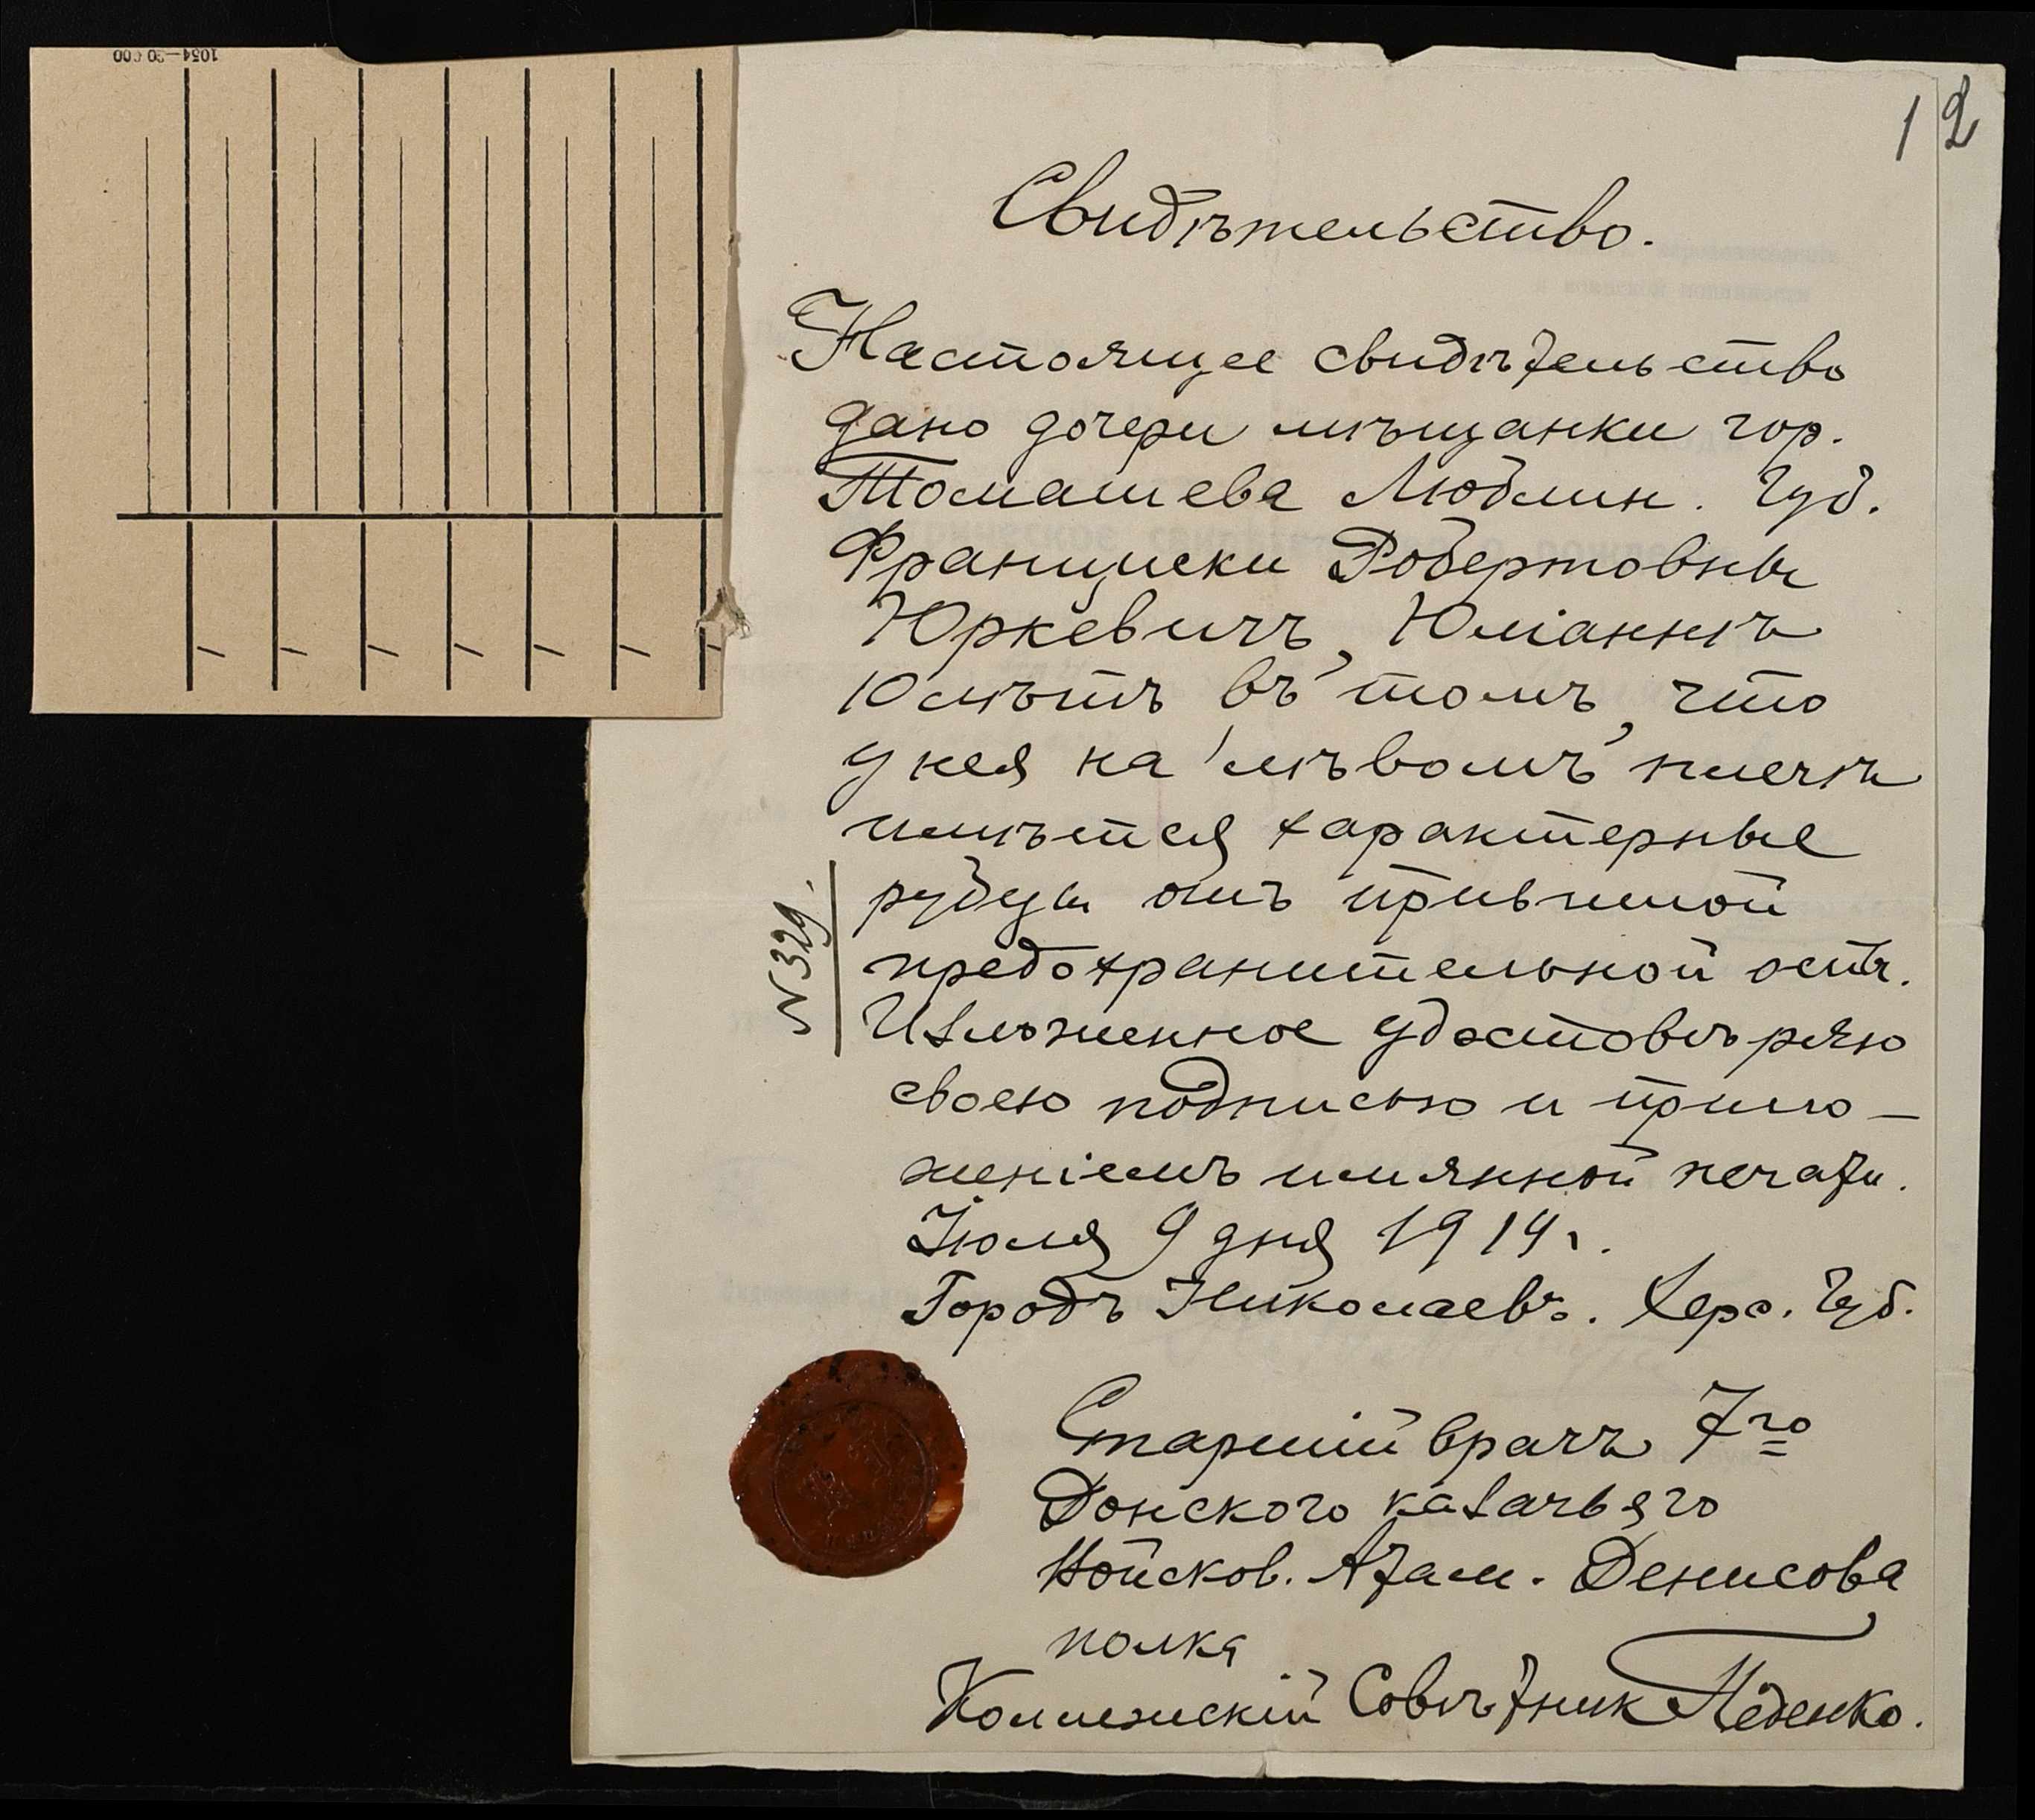 1054—30 000
12
Свидѣтельство.
Настоящее свидѣтельство
дано дочери мѣщанки гор.
Томашева Люблин. Губ.
Франциски Робертовны
Юркевичъ, Юліаннѣ
10 лѣтъ въ томъ, что
у нея на лѣвомъ плечѣ
имѣтся характерные
рубцы отъ привитой
предохранительной оспы.
№ 329.
Изложенное удостовѣряю
своею подписью и прило-
женіемъ имянной печати.
Іюля 9 дня 1914 г.
Городъ Николаевъ. Херс. Губ.
Старшій врачъ 7го
Донского казачьяго
Войсков. Атам. Денисова
полка
Коллежскій Совѣтник